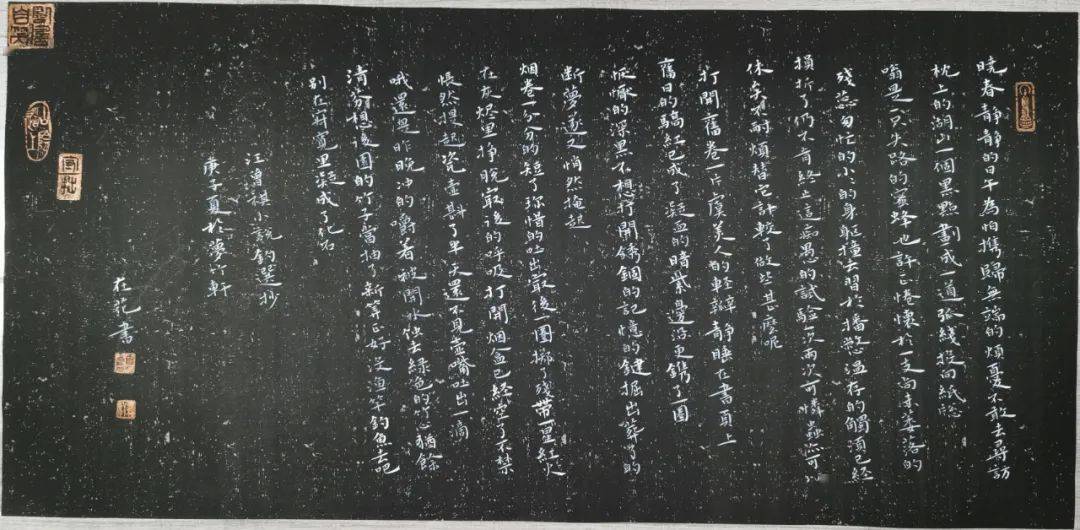 曉春靜靜的日午為怕攜歸無端的煩憂不敢去尋訪
枕上的湖山一個黑點劃成一道弧綫投向紙窗
嗡是一只失路的蜜蜂也許正惓懷於一支尚未萎落的
殘蕊匆忙的小小的身軀撞去習於播散溫存的觸須已經
損折了仍不肯終止這痴愚的試驗一次兩次可憐蟲亦可以
休矣不耐煩替它計較了做些甚麼呢
打開舊卷一片虞美人的輕瓣靜睡在書頁上
舊日的驕紅已成了凝血的暗紫邊沿更鐫了一圈
恹恹的深黑不想打開銹錮的記憶的鍵掘出葬了的
斷夢遂又悄然掩起
烟卷一分分的短了珍惜的吐出最後一圈擲了殘蒂一星紅火
在灰燼里掙脫最後的呼吸打開烟盒已經空了不禁
悵然提起瓷壺斟了半天還不見壺嘴吐出一滴
哦還是昨晚沖的嚼着被開水蝕去綠色的竹心猶餘
清芬想後園的竹子當抽了新筍正好沒漁竿釣魚去吧
別在寂寞里凝成了化石
汪曾祺小說釣選抄
庚子夏於夢竹軒
在花書